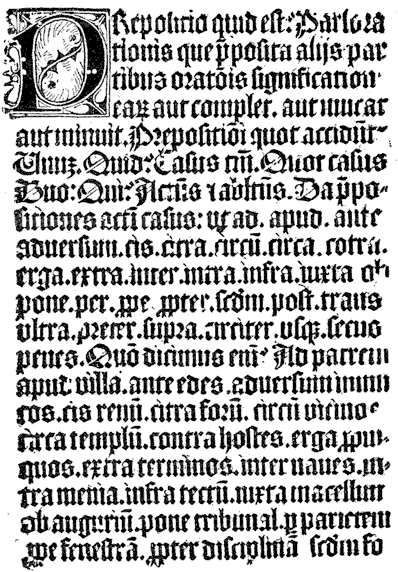 PRepositio quid est? Pars ora
tionis que p̄posita alijs par
tibus oratōis signification
eaꝝ aut complet. aut mutat
aut minuit. Prepositiōi quot accidūt
Unuꝫ. Quid? Casus tm̄. Quot casus
Duo. Qui? Actūs ⁊ abltūs. Da p̄po-
sitiones acti casus: ut ad. apud. ante
adversum. cis. citra. circū. circa. cotra.
erga. extra. inter. intra. infra. iuxta ob
pone. per. ꝓpe ꝓpter. scdm̄. post. trans
ultra. preter. supra. circiter. usqꝫ. secus
penes. Quō dicimus em̄? Ad patrem
aput villa. ante edes. adversum inimi
cos. cis renū. citra forū. circū vicinos
circa templū. contra hostes. erga ꝓpin-
quos. extra terminos. inter naves. in-
tra menia. infra tectū. iuxta macellum
ob auguriū. pone tribunal. ꝑ parietem
ꝓpe fenestrā. ꝓpter disciplinā scdm fo